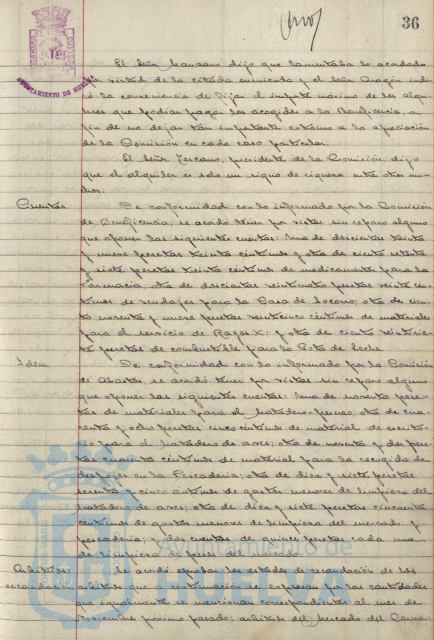 36
AYUNTAMIENTO DE HUELVA
El Señor Manzano dijo que lamentaba lo acordado
por virtud de la citada enmienda y el Señor Aragón indi-
có la conveniencia de fijar el importe máximo de los alqui-
leres que podían pagar los acogidos a la Beneficencia, a
fin de no dejar tan importante extremo a la apreciación
de la Comisión en cada caso particular.
El Señor Toscano, presidente de la Comisión, dijo
que el alquiler es solo un signo de riqueza entre otros mu-
chos.
Cuentas. De conformidad con lo informado por la Comisión
de Beneficencia, se acordó tener por vistas sin reparo alguno
que oponer las siguientes cuentas: Una de doscientas treinta
y nueve pesetas treinta céntimos y otra de ciento setenta
y siete pesetas treinta céntimos de medicamentos para la
Farmacia, otra de doscientas veinticuatro pesetas veinte cén-
timos de vendajes para la Casa de Socorro; otra de cien-
to noventa y nueve pesetas veinticinco céntimos de materiales
para el servicio de Rayos X; y otra de ciento veintisiete
pesetas de combustible para la Gota de leche.
Idem. De conformidad con lo informado por la Comisión
de Abastos, se acordó tener por vistas sin reparo alguno
que oponer las siguientes cuentas: Una de noventa pese-
tas de materiales para el matadero público, otra de cua-
renta y ocho pesetas cinco céntimos de material de escrito-
rio para el matadero de aves; otra de noventa y dos pese-
tas cuarenta céntimos de material para la recogida de
despojos en la Pescadería; otra de diez y siete pesetas
sesenta y cinco céntimos de gastos menores de limpieza del
matadero de aves; otra de diez y siete pesetas cincuenta
céntimos de gastos menores de limpieza del mercado y
pescadería; y dos cuentas de quince pesetas cada una
de limpieza de pesas del mercado.
Arbitrios: Se acordó aprobar los estados de recaudación de los
recaudación. arbitrios que a continuación se expresan por las cantidades
que igualmente se mencionan correspondientes al mes de
Noviembre próximo pasado: arbitrios del Mercado del Carmen
Ayuntamiento de
HUELVA